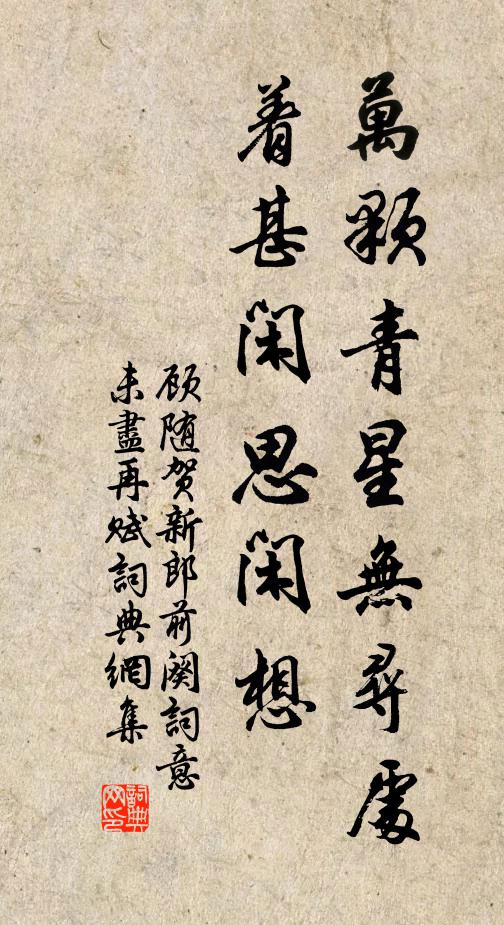 萬顆青星無尋處
着甚閑思閑想
顾随贺新郎前阕詞意
未盡再赋詞典網集
詞典网印